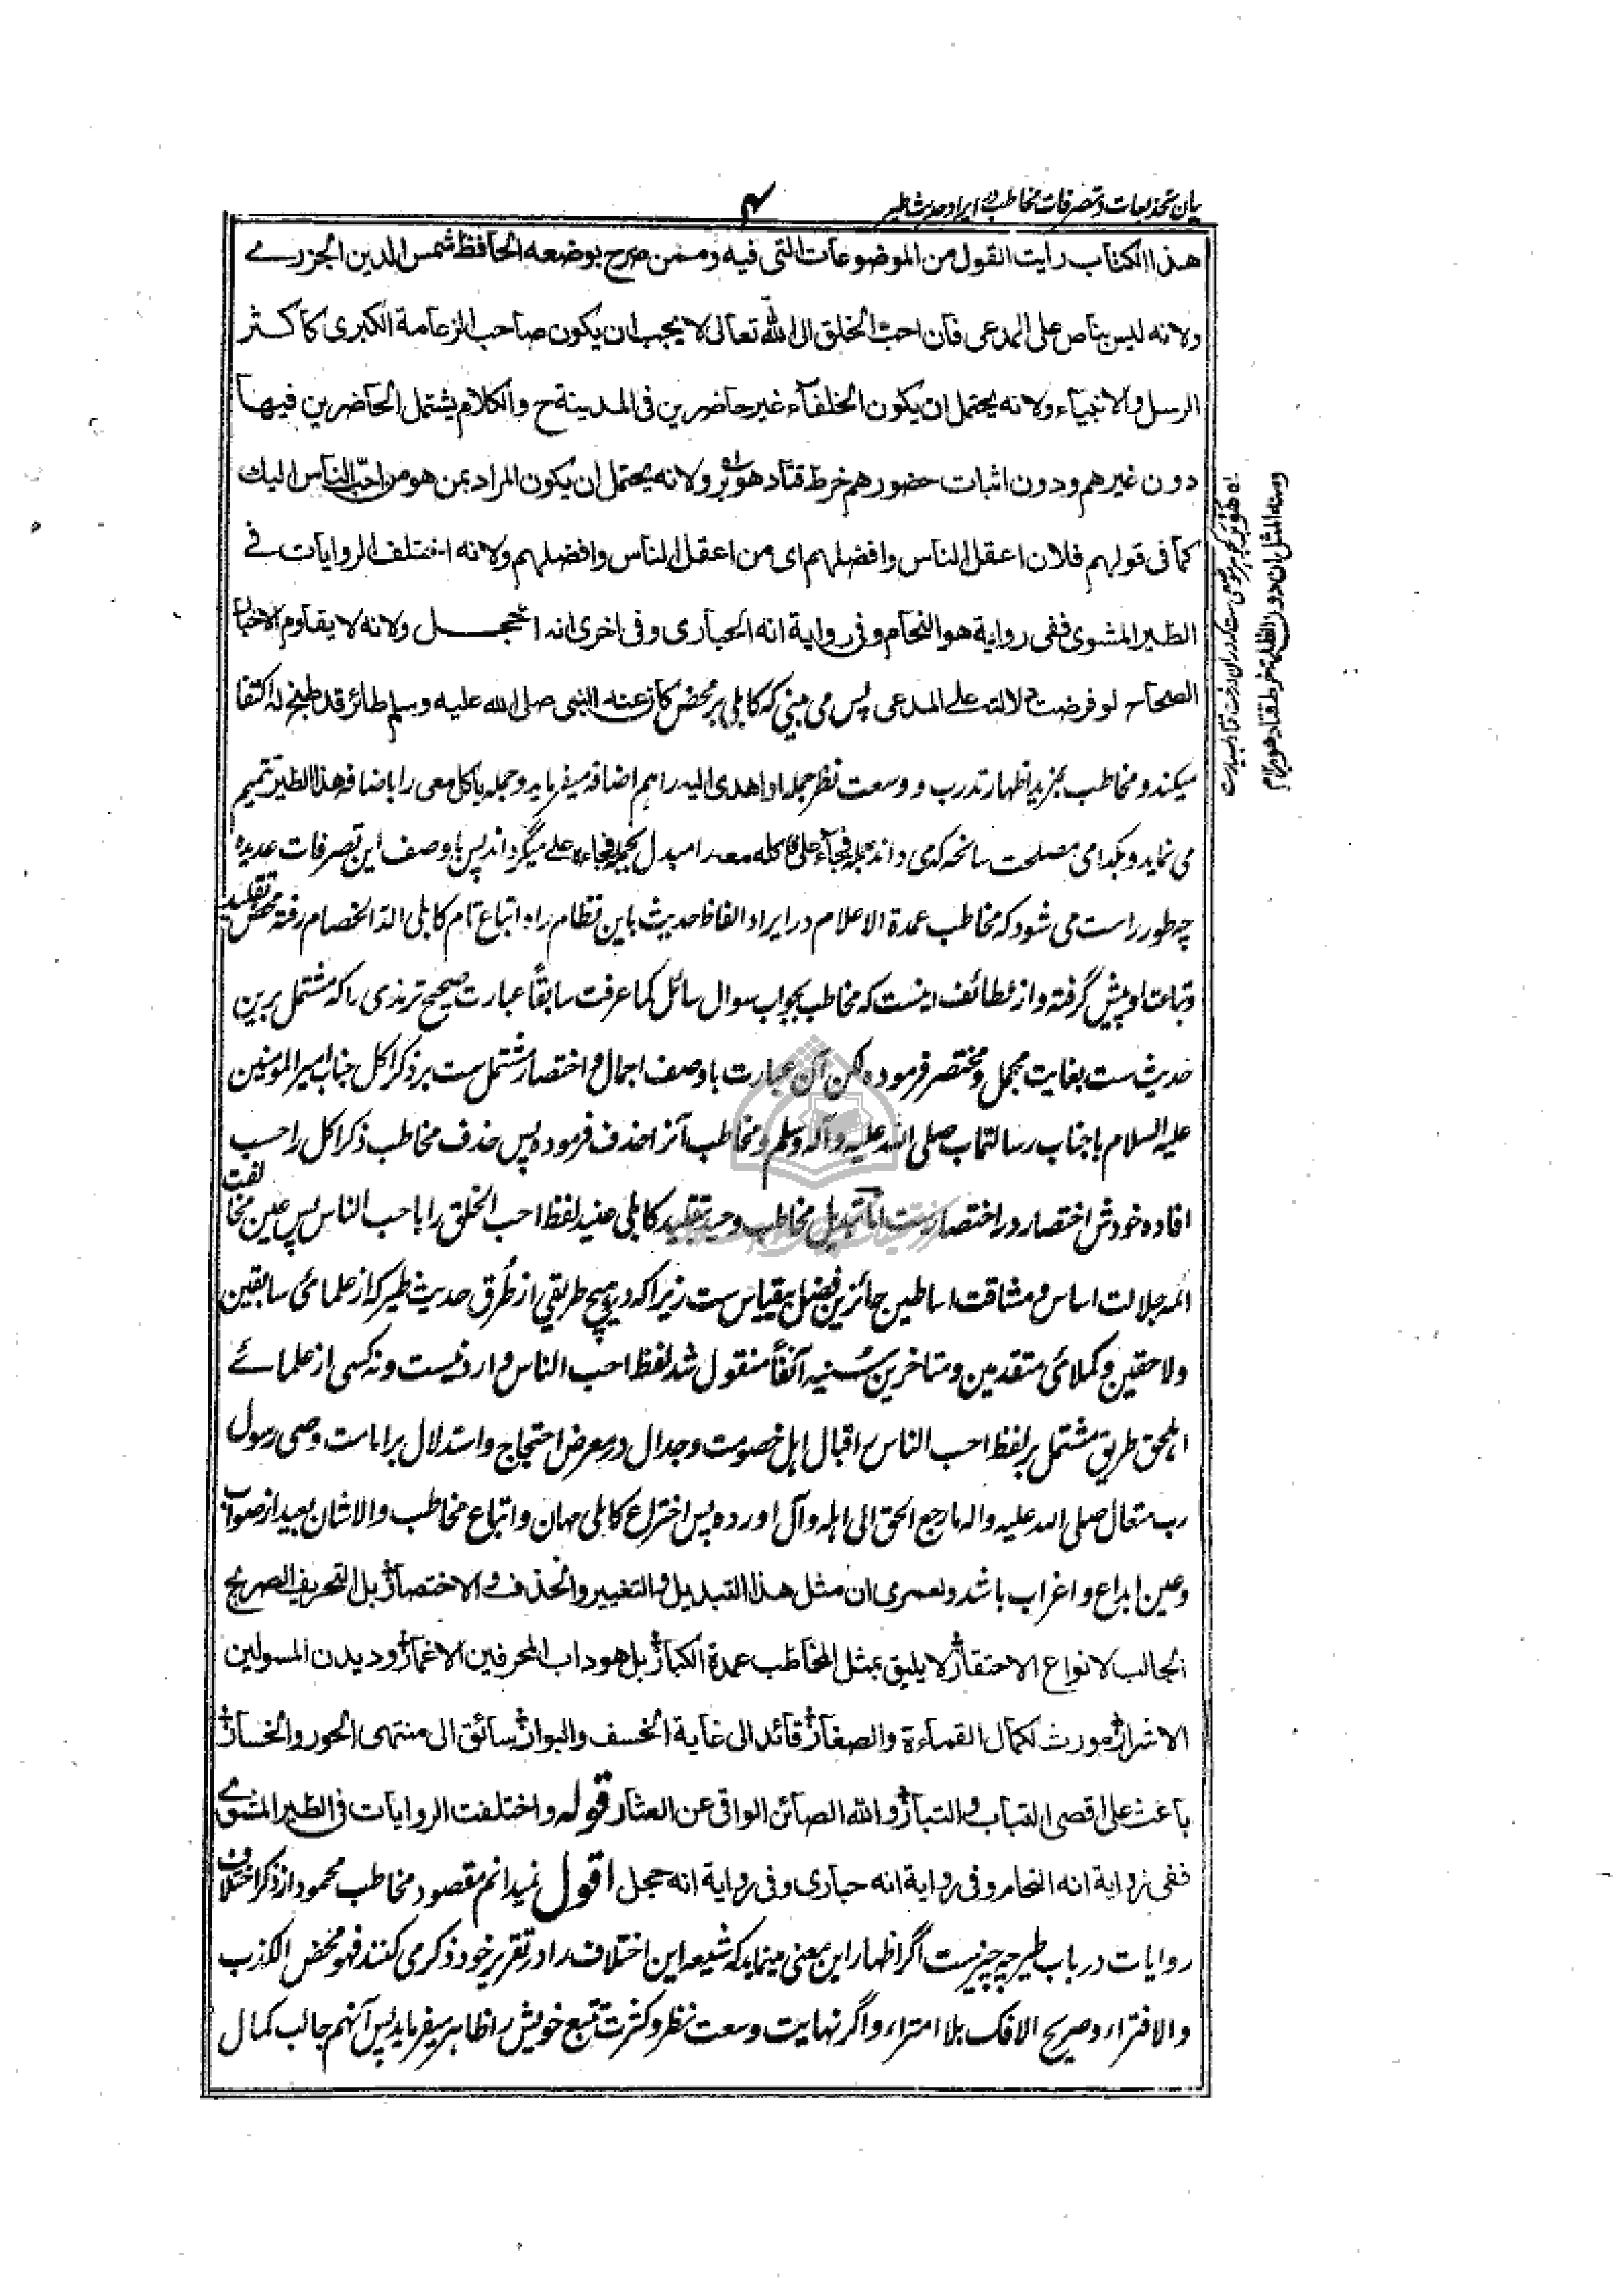 بیان تخدیعات و تصرفات مخاطب در ایراد حدیث طیر
هذا الكتاب رايت القول من الموضوعات التى فيه وممن صرح بوضعه الحافظ شمس الدين الجزرے
ولانه ليس بناص على المدعى فان احب الخلق الى الله تعالى لا يجب ان يكون صاحب الزعامة الكبرى كاكثر
الرسل والانبياء ولانه يحتمل ان يكون الخلفاء غير حاضرين فى المدينة ح والكلام يشتمل الحاضرين فيها
دون غيرهم ودون اثبات حضورهم خرط قتاد هوبر ولانه يحتمل ان يكون المراد بمن هو من احب الناس اليك
كما فى قولهم فلان اعقل الناس وافضلهم اى من اعقل الناس وافضلهم ولانه اختلف الروايات فے
الطير المشوى ففى رواية هو النحام وفى رواية انه الحبارى وفى اخرى انه الحجل ولانه لا يقاوم الاخبار
الصحاح لو فرضت دلالته على المدعى پس می بینی که کابلی بر محض کان عند النبى صلى الله عليه وسلم طائر قد طبخ له اکتفا
میکند و مخاطب بمزید اظهار تدرب و وسعت نظر جمله او اهدى اليه را هم اضافه میفرماید و جمله یاکل معی را باضافه هذا الطير تتمیم
می نماید و بکدامی مصلحت سانحه که می داند جمله فجاء على فاكله معه را مبدل بجمله فجاءه على میگرداند پس با وصف این تصرفات عدیده
چه طور راست می شود که مخاطب عمدة الاعلام در ایراد الفاظ حدیث باین نظام راه اتباع تام کابلی الد الخصام رفته محض تقلید
و تباعت او پیش گرفته و از لطائف اینست که مخاطب بجواب سوال سائل کما عرفت سابقاً عبارت صحیح ترمذی را که مشتمل برین
حدیث ست بغایت مجمل و مختصر فرموده لکن آن عبارت با وصف اجمال و اختصار مشتمل ست بر ذکر اکل جناب امیر المومنین
علیه السلام با جناب رسالتماب صلى الله عليه وآله وسلم و مخاطب آنرا حذف فرموده پس حذف مخاطب ذکر اکل را حسب
افاده خودش اختصار در اختصار ست اما تبدیل مخاطب وحید بتقلید کابلی عنید لفظ احب الخلق را باحب الناس پس عین مخالفت
ائمه جلالت اساس و مشاقت اساطین حائزین فضل بیقیاس ست زیرا که در هیچ طریقی از طُرق حدیث طیر که از علمای سابقین
ولاحقین و کملای متقدمین و متاخرین سُنیه آنفاً منقول شد لفظ احب الناس وارد نیست و نه کسی از علمائے
اهلحق طریق مشتمل بر لفظ احب الناس بر اقبال اهل خصومت و جدال در معرض احتجاج و استدلال بر امامت وصی رسول
رب متعال صلى الله عليه واله ما رجع الحق الى اهله و آل آورده پس اختراع کابلی مهان و اتباع مخاطب والاشان بعید از صواب
و عین ابداع و اغراب باشد ولعمرى ان مثل هذا التبديل والتغيير والحذف والاختصار بل التحريف الصريح
الجالب لانواع الاحتقار لا يليق بمثل المخاطب عمدة الكبار بل هو داب المحرفين الاغمار وديدن المسولين
الاشرار مورث لكمال القماءة والصغار قائد الى غاية الخسف والبوار سائق الى منتهى الحور والخسار
باعث على اقصى التباب والتبار والله الصائن الواقى عن العثار قوله واختلفت الروايات فى الطير المشوے
ففى رواية انه النحام وفى رواية انه حبارى وفى رواية انه حجل اقول نمیدانم مقصود مخاطب محمود از ذکر اختلاف
روایات در باب طیر چه چیزست اگر اظهار این معنی مینماید که شیعه این اختلاف را در تقریر خود ذکر می کنند فهو محض الكذب
والافتراء وصريح الافك بلا امتراء و اگر نهایت وسعت نظر و کثرت تتبع خویش را ظاهر میفرماید پس آنهم جالب کمال
ومنه المثل ان دون الظلمة خرط قتاد هوبر